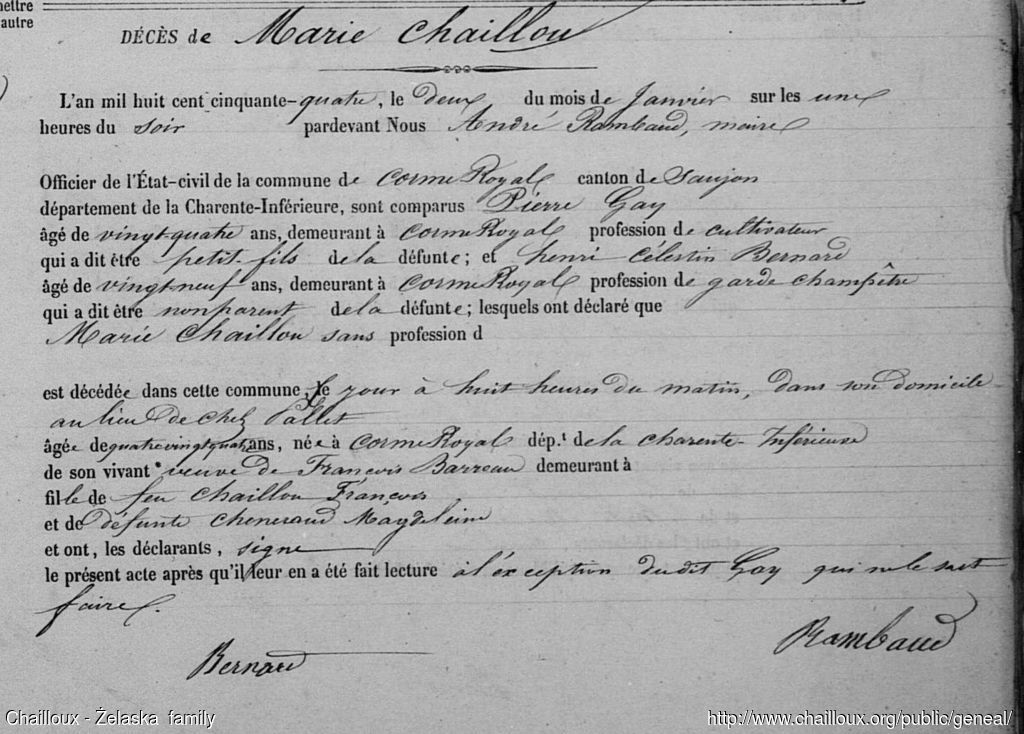 mettre
autre
DÉCÈS de Marie Chaillou
L'an mil huit cent cinquante-quatre, le deux du mois de Janvier sur les une
heures du soir pardevant Nous André Rambaud, maire
Officier de l'État-civil de la commune de Corme Royal canton de Saujon
département de la Charente-Inférieure, sont comparus Pierre Gay
âgé de vingt-quatre ans, demeurant à Corme Royal profession de cultivateur
qui a dit être petit-fils de la défunte; et henri Célestin Bernard
âgé de vingt-neuf ans, demeurant à Corme Royal profession de garde champêtre
qui a dit être non parent de la défunte; lesquels ont déclaré que
Marie Chaillou sans profession d
est décédée dans cette commune, le jour à huit heures du matin, dans son domicile
au lieu de chez Pallet
âgée de quatrevingtquatre ans, née à Corme Royal dép.t de la charente-Inférieure
de son vivant veuve de François Barreau demeurant à
fille de feu Chaillou François
et de défunte Magdeleine
et ont, les déclarants, signé
le présent acte après qu'il leur en a été fait lecture à l'exception dudit Gay qui ne le sait
faire.
Bernard
Rambaud
Chailloux - Żelaska family
http://www.chailloux.org/public/geneal/